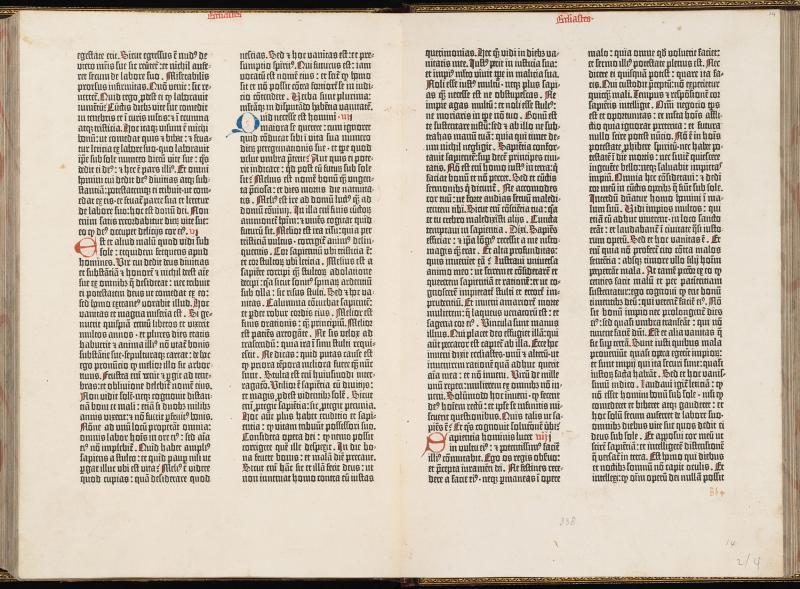 Eccliastes
egestate etiā. Sicut egressus ē nud⁹ de
utero mr̄is sue sic reūtet : et nichil aufe-
ret secum de labore suo. Miserabilis
prorsus infirmitas. Quō venit : sic re-
vertet̄. Quid ergo p̄dest ei q̄ laboravit
in ventū : Cūctis dieb⁹ vite sue comedit
in tenebris et ī curis multis : et ī erumna
atq; tristicia. Hoc itaq; visum ē michi
bonū : ut comedat quis et bibat et frua-
tur leticia ex labore suo : quo laboravit
ip̄e sub sole numero dierū vite sue : q̄s
dedit ei de⁹ : et hec ē pars illi⁹. Et omni
hominī cui dedit de⁹ divicias atq; sub-
stantiā : potestatemq; ei tribuit ut com-
edat ex eis et fruat̄ parte sua et letetur
de labore suo : hoc est donū dei. Non
enim satis recordabitur dierū vite sue :
eo q̄ de⁹ occupet delicijs cor ei⁹. vi
Est et aliud malū quod vidi sub
sole : et quidem frequens apud
homines. Vir cui dedit deus divicias
et substātiā et honorē et nichil deest aīe
sue ex omnib⁹ q̄ desiderat : nec tribuit
ei potestatem deus ut comedat ex eo :
sed homo extrane⁹ vorabit illud. Hoc
vanitas et magna miseria est. Si ge-
nuerit quispiā centū liberos et vixerit
multos annos et plures dies etatis
habuerit et anima illi⁹ nō utat̄ bonis
substātie sue sepulturaq; careat : de hoc
ego pronūcio q̄ melior illo sit abor-
tivus. Frustra enī venit et pgit ad tene-
bras : et oblivione delebit̄ nomē eius.
Non vidit solē neq; cognovit distan-
tiā boni et mali : etiā si duob⁹ milib⁹
annis vixerit : et nō fuerit p̄fruit⁹ bonis.
Nōne ad unū locū properāt omnia :
omnis labor hoīs in ore ei⁹ : sed aīa
ei⁹ nō implebit̄. Quid habet ampli⁹
sapiens a stulto : et quid paup nisi ut
pgat illuc ubi est vita : Meli⁹ ē videre
quod cupias : quā desiderare quod
nescias. Sed et hoc vanitas est : et pre-
sumptio spirit⁹. Qui futurus est : iam
vocatū est nomē eius : et scit̄ q̄ homo
sit et nō possit cōtra fortiorē se in iudi-
cio cōtendere. Verba sunt plurima :
multāq; in disputādo habētia vanitatē.
Quid necesse est homini vii
maiora se querere : cum ignoret
quid cōducat sibi ī vita sua numero
dierū peregrinationis sue : et tpe quod
velut umbra p̄terit : Aut quis ei pote-
rit indicare : qd post eū futurū sub sole
sit : Melius est nomē bonū q̄ unguen-
ta p̄ciosa : et dies mortis die nativita-
tis. Meli⁹ est ire ad domū luct⁹ q̄ ad
domū cōvivij. In illa enī finis cūctoꝝ
ammonet̄ hoīm : et vivēs cogitat quid
futurū sit. Melior est ira risu : quia per
tristiciā vultus corrigit̄ anim⁹ delin-
quentis. Cor sapientiū ubi tristicia ē :
et cor stultoꝝ ubi leticia. Melius est a
sapiēte corripi q̄ stultoꝝ adolatione
decipi : q̄a sicut sonit⁹ spinaꝝ ardentiū
sub olla : sic risus stulti. Sed et hoc va-
nitas. Calumnia cōturbat sapientē :
et pdet robur cordis illius. Melior est
finis orationis : q̄ principiū. Melior
est patiēs arrogāte. Ne sis velox ad
irascendū : quia ira ī sinu stulti requi-
escit. Ne dicas : quid putas cause est
q̄ priora tēpora meliora fuere q̄ nūc
sunt. Stulta est enī huiuscemōi inter-
rogatō. Utilior ē sapiētia cū divitijs :
et magis p̄dest videntib⁹ solē. Sicut
enī p̄tegit sapiētia : sic p̄tegit pecunia.
Hoc autē plus habet eruditio et sapi-
entia : q̄ vitam tribuūt possessori suo.
Considera opera dei : q̄ nemo possit
corrigere quē ille despexit. In die bo-
na fruere bonis : et malā diē precave.
Sicut enī hāc sic et illā fecit deus : ut
non inveniat homo contra eū iustas
Eccliastes
querimonias. Hec q̄q; vidi in dieb⁹ va-
nitatis mee. Iust⁹ perit in iusticia sua :
et impi⁹ m̄lto vivit tpe in malicia sua.
Noli esse iust⁹ multū : neq; plus sapi-
as q̄ necesse est ne obstupescas. Ne
impie agas multū : et noli esse stult⁹ :
ne moriaris in tpe nō tuo. Bonū est
te sustentare iustū : sed et ab illo ne sub-
trahas manū tuā : quia qui timet de-
um nichil negligit. Sapiētia confor-
tavit sapientē : sup decē principes civi-
tatis. Nō est enī homo iust⁹ in terra : q̄
faciat bonū et nō peccet. Sed et cūctis
sermonib⁹ q̄ dicunt̄ . Ne accomodes
cor tuū : ne forte audias servū maledi-
centem tibi. Scit enī cōsciētia tua : q̄a
et tu crebro maledixisti alijs. Cuncta
temptavi in sapientia. Dixi. Sapiēs
efficiar : et ip̄a lōgi⁹ recessit a me m̄lto
magis q̄ erat. Et alta profunditas :
quis inveniet eā : Lustravi universa
animo meo : ut scirem et cōsiderarē et
quererem sapientiā et rationē : et ut co-
gnoscerē impietatē stulti et errorē im-
prudentiū. Et inveni amariorē morte
mulierem : q̄ laqueus venatorū est : et
sagena cor ei⁹. Vincula sunt manus
illius. Qui placet deo effugiet illā : qui
autē peccator est capiet̄ ab illa. Ecce hoc
inveni dixit ecclesiastes : unū et alterū : ut
invenirem rationē quā adhuc querit
aīa mea : et nō inveni. Virū de mille
unū repperi : mulierem ex omnib⁹ nō in-
veni. Solūmodo hoc inveni : q̄ fecerit
de⁹ hoīem rectū : et ip̄e se infinitis mi-
scuerit questionibus. Quis talis ut sa-
piēs ē : Et q̄s cognovit solutionē v̄bi :
Sapientia hominis lucet viij
in vultu ei⁹ : et potentissim⁹ faciē
illi⁹ cōmutabit. Ego os regis observo :
et p̄cepta iuramēti dei. Ne festines rece-
dere a facie ei⁹ : neq; pmaneas ī opere
malo : quia omne qd voluerit faciet :
et sermo illi⁹ potestate plenus est. Nec
dicere ei quisquā potest : quare ita fa-
cis. Qui custodit p̄ceptū : nō experietur
quicq̄ mali. Tempus et respōsionē cor
sapiētis intelligit. Omni negocio tp̄s
est et oportunitas : et multa hoīs afflic-
tio : quia ignorat preterita : et futura
nullo scire potest nūcio. Nō ē in hoīs
potestate p̄hibere spiritū : nec habet po-
testatē ī die mortis : nec sinit̄ quiescere
ingruēte bello : neq; salvabit impietas
impiū. Omnia hec cōsideravi : et dedi
cor meū in cūctis opib⁹ q̄ fiūt sub sole.
Interdū dn̄atur homo homini ī ma-
lum suū. Vidi impios sepultos : qui
etiā cū adhuc viverent in loco sancto
erāt : et laudabant̄ ī civitate q̄si iusto-
rum operū. Sed et hoc vanitas ē. Et-
enī quia nō profert̄ cito cōtra malos
sentētia : absq; timore ullo filij hoīm
perpetrāt mala. At tamē pctōr ex eo q̄
centies facit malū et per patientiam
sustentatur : ego cognovi q̄ erit bonū
timentib⁹ deū : qui verent̄ faciē ei⁹. Nō
sit bonū impio nec prolongent̄ dies
ei⁹ : sed quasi umbra transeāt : qui nō
timent faciē dn̄i. Est et alia vanitas q̄
fit sup terrā. Sunt iusti quibus mala
proveniūt quasi opera egerit impioꝝ :
et sunt impij qui ita securi sunt : quasi
iustoꝝ facta habeāt. Sed et hoc vanis-
simū iudico. Laudavi igit̄ leticiā : q̄
nō esset homini bonū sub sole : nisi q̄
comederet et biberet atq; gauderet : et
hoc solū secum auferret de labore suo
omnibus diebus vite sue quos dedit ei
deus sub sole. Et apposui cor meū ut
scirē sapiētiā : et intelligerē distensionē
q̄ versat̄ in terra. Est homo qui diebus
et noctib⁹ somnū nō capit oculis. Et
intellexi : q̄ oīm operū dei nullā possit
338
14
2/4